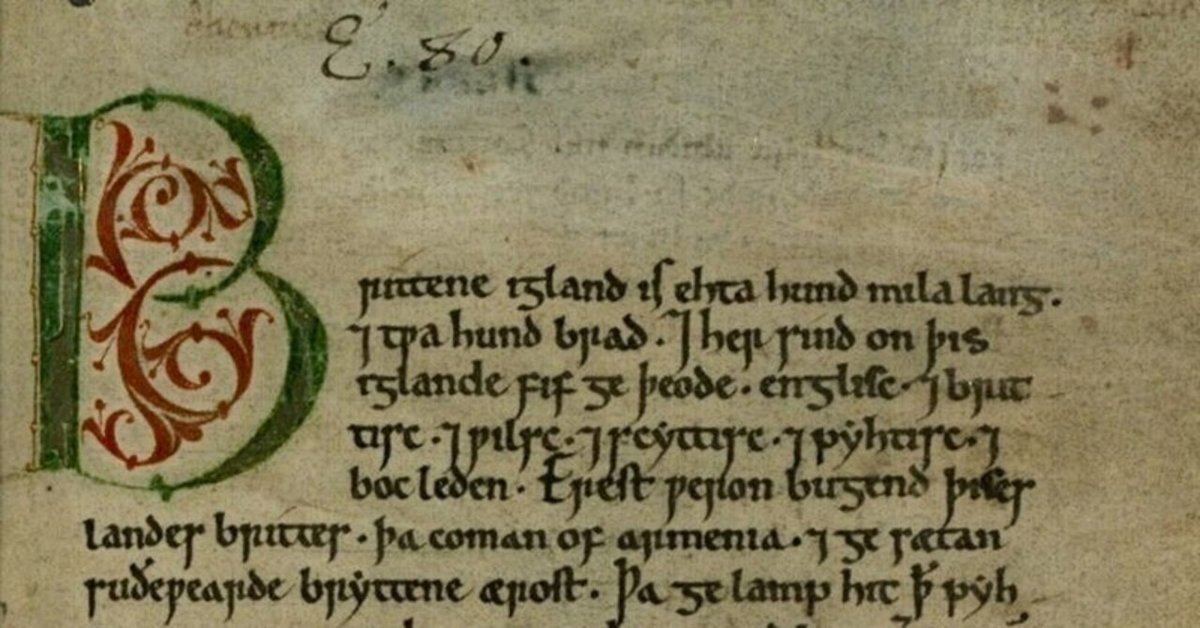 E. 80.
Brittene igland is ehta hund mila lang.
⁊ tƿa hund brad. ⁊ her sind on þis
iglande fif ge þeode. englisc. ⁊ brit
tisc. ⁊ ƿilsc. ⁊ scyttisc. ⁊ pyhtisc. ⁊
boc leden. Erest ƿeron bugend þises
landes brittes. þa coman of armenia. ⁊ ge sætan
suðeƿearde bryttene ærost. Þa ge lamp hit ꝥ pyh